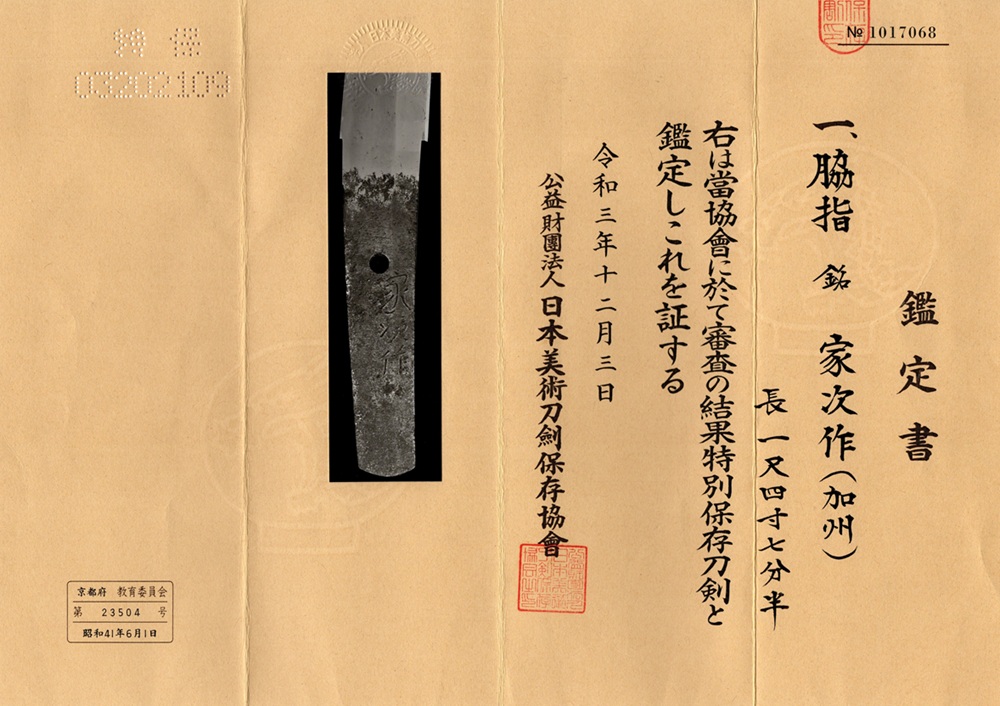 № 1017068
鑑定書
一、脇指 銘 家次作(加州)
長一尺四寸七分半
右は當協會に於て審査の結果特別保存刀剣と
鑑定しこれを証する
令和三年十二月三日
公益財團法人日本美術刀劍保存協會
家次作
特保
03202109
京都府 教育委員会
第 23504 号
昭和41年6月1日